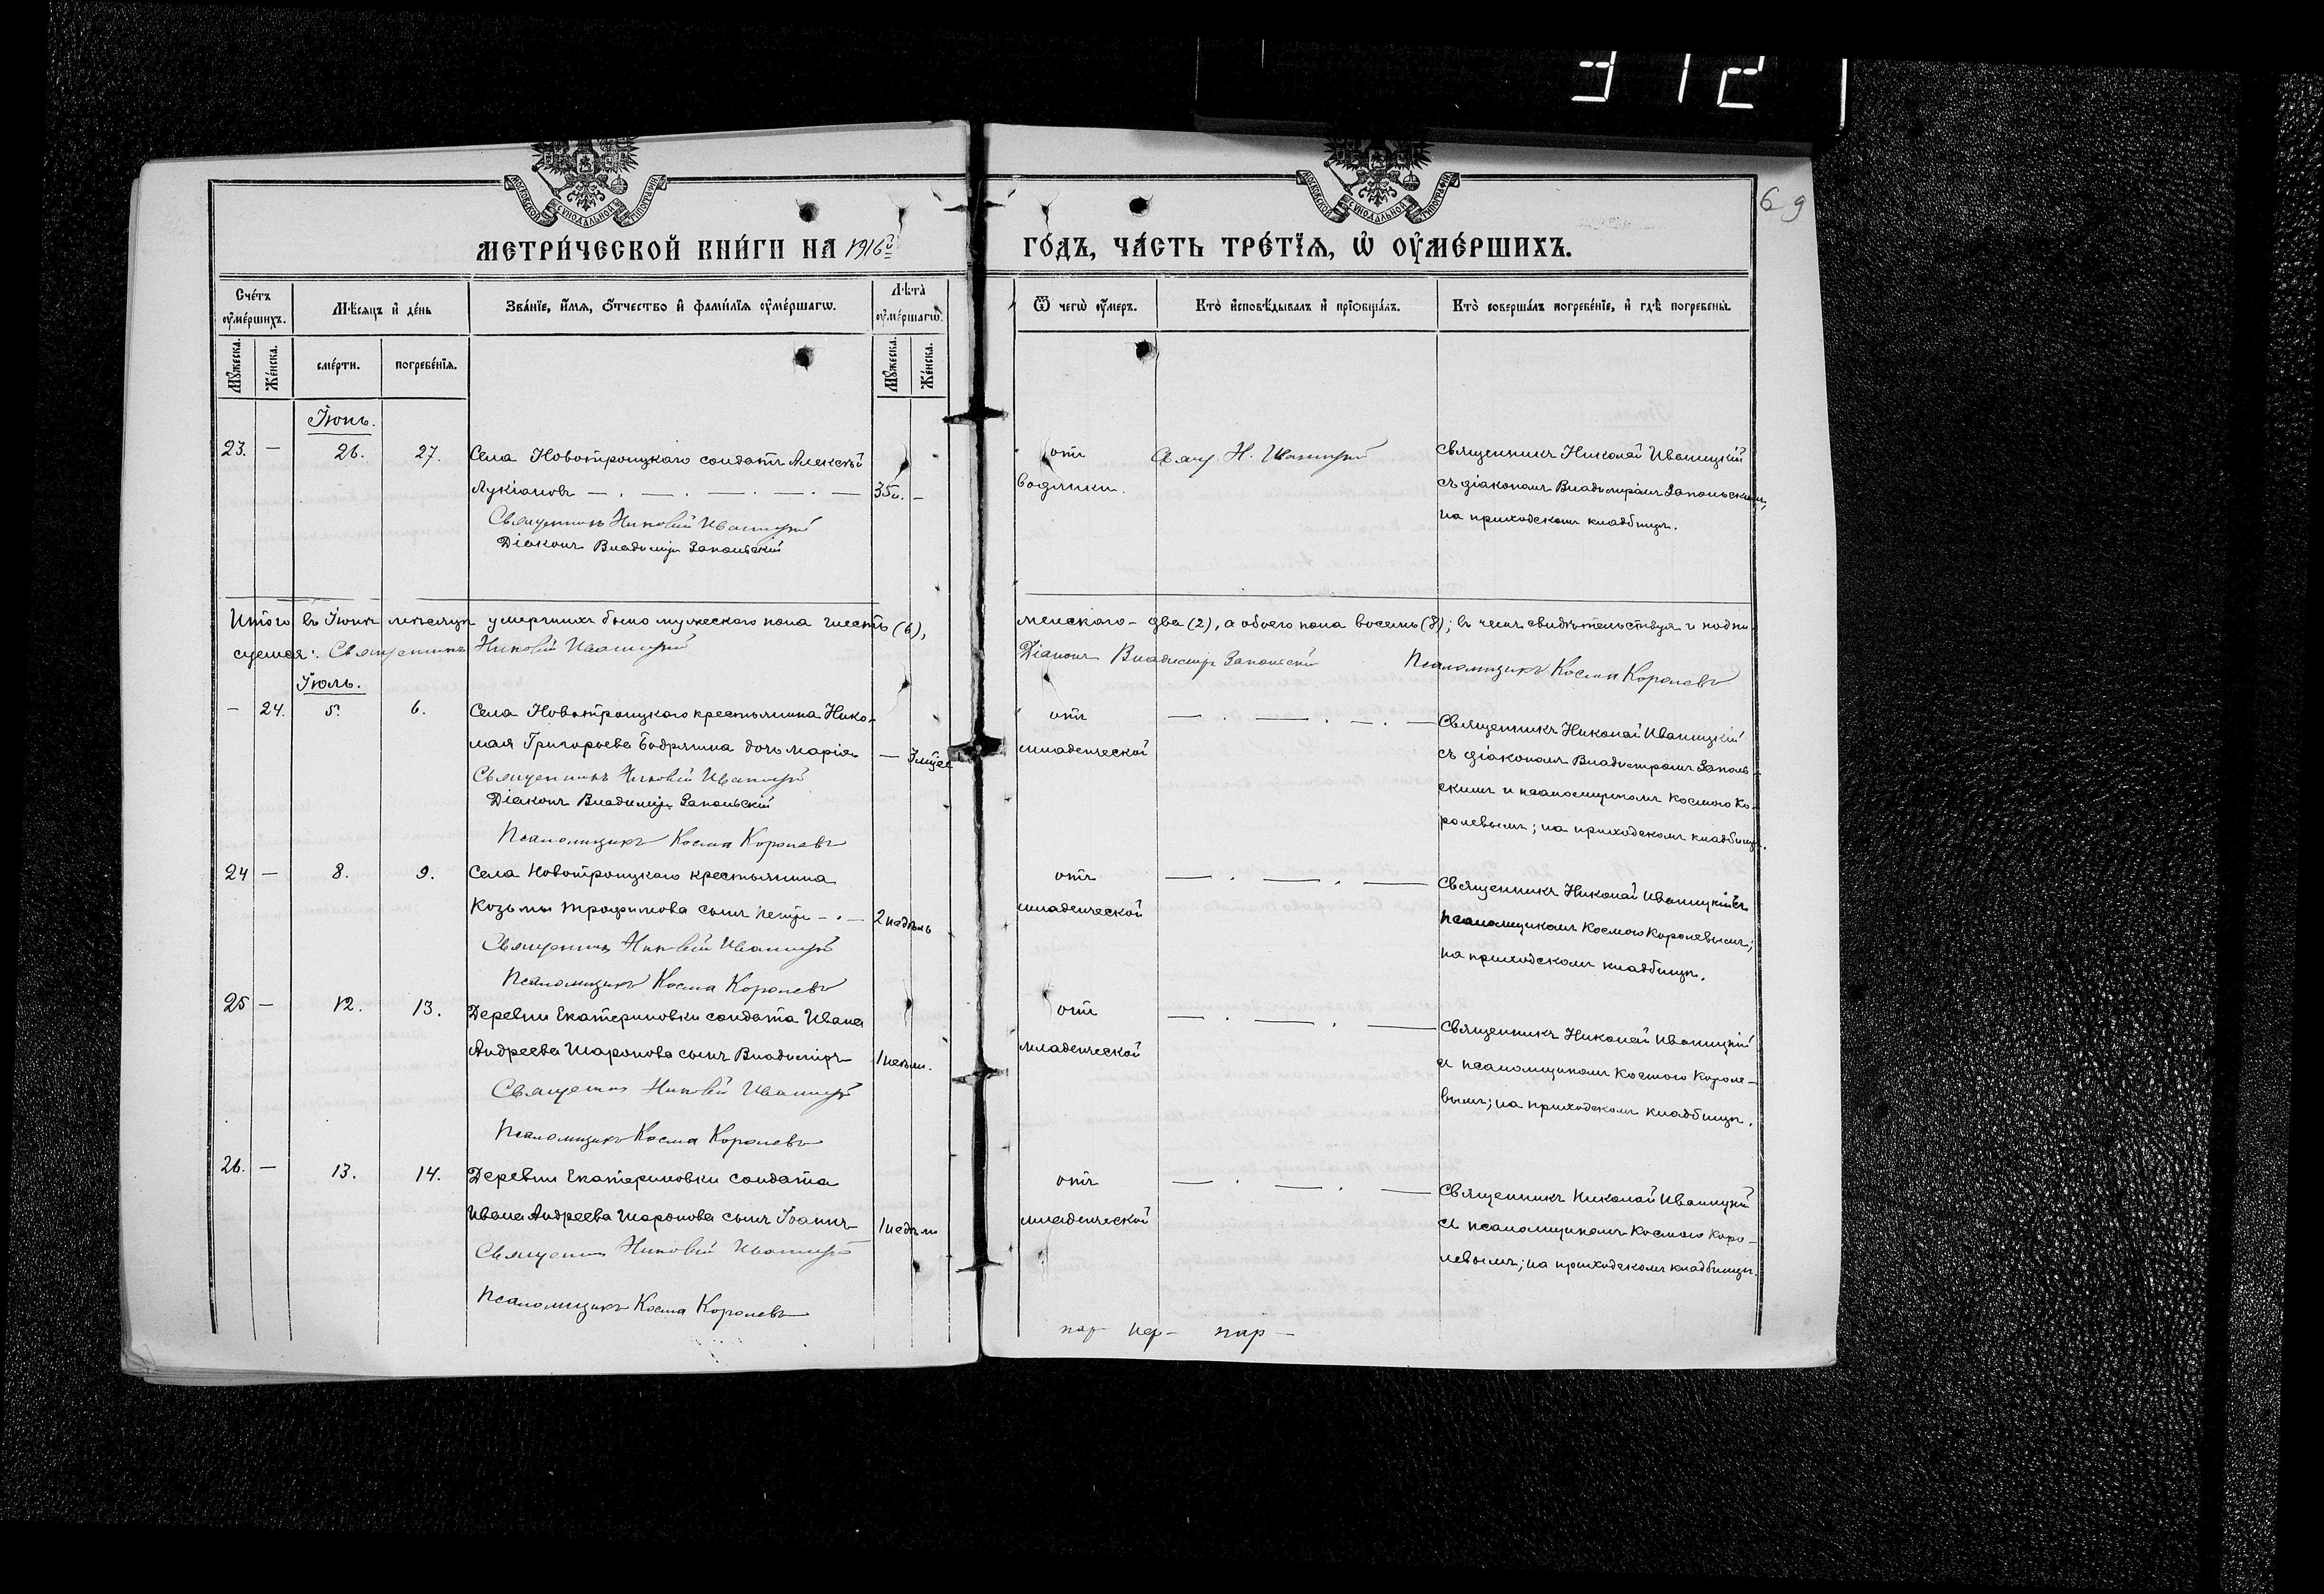 312
69
МОСКОВСКОЙ СѴНОДАЛЬНОЙ ТИПОГРАФІИ
МОСКОВСКОЙ СѴНОДАЛЬНОЙ ТИПОГРАФІИ
МЕТРИ́ЧЕСКОЙ КНИ́ГИ НА 1916й
ГО́ДЪ, ЧА́СТЬ ТРЕ́ТЇѦ, Ѡ҆ ОУ҆МЕ́РШИХЪ.
Сче́тъ оу҆ме́ршихъ.
Мѣ́сяцъ и҆ де́нь
Зва́нїе, и҆́мя, ѻ҆́тчество и҆ фами́лїя оу҆ме́ршагѡ.
Лѣта̀ оу҆ме́ршагѡ.
Ѿ чегѡ̀ оу҆́меръ.
Кто̀ и҆сповѣ́дывалъ и҆ прїѡбща́лъ.
Кто̀ соверша́лъ погребе́нїе, и҆ гдѣ̀ погребены̀.
Мꙋ́жеска.
Же́нска.
сме́рти.
погребе́нїя.
Мꙋ́жеска.
Же́нска.
Іюнь.
23. — 26. 27. Села Новотроицкаго солдатъ Алексѣй
Лукіановъ — . — . — . — . — 35л. —
Священникъ Николай Иваницкій
Діаконъ Владиміръ Запольскій
отъ
водянки.
Свящ. Н. Иваницкій
Священникъ Николай Иваницкій
съ діакономъ Владиміромъ Запольскимъ,
на приходскомъ кладбищѣ.
Итого въ Іюнѣ мѣсяцѣ умершихъ было мужескаго пола шесть (6), женскаго – два (2), а обоего пола восемь (8); въ чемъ свидѣтельствуя и подпи
суемся: Священникъ Николай Иваницкій Діаконъ Владиміръ Запольскій Псаломщикъ Косма Королевъ
Іюль.
— 24. 5. 6. Села Новотроицкаго крестьянина Нико-
лая Григорьева Бодрягина дочь Марія
Священникъ Николай Иваницкій
Діаконъ Владиміръ Запольскій
Псаломщикъ Косма Королевъ
отъ
младенческой
— . — . — . —
Священникъ Николай Иваницкій
съ діакономъ Владиміромъ Заполь-
скимъ и псаломщикомъ Космою Ко-
ролевымъ; на приходскомъ кладбищѣ.
24 — 8. 9. Села Новотроицкаго крестьянина
Козьмы Трофимова сынъ Петръ — . — 2 недѣль
Священникъ Николай Иваницкій
Псаломщикъ Косма Королевъ
отъ
младенческой
— . — . —
Священникъ Николай Иваницкій съ
псаломщикомъ Космою Королевымъ;
на приходскомъ кладбищѣ.
25 — 12. 13. Деревни Екатериновки солдата Ивана
Андреева Шаронова сынъ Владиміръ 1 недѣли.
Священникъ Николай Иваницкій
Псаломщикъ Косма Королевъ
отъ
младенческой
— . — . —
Священникъ Николай Иваницкій
съ псаломщикомъ Космою Короле-
вымъ; на приходскомъ кладбищѣ.
26. — 13. 14. Деревни Екатериновки солдата
Ивана Андреева Шаронова сынъ Іоаннъ 1 недѣли
Священникъ Николай Иваницкій
Псаломщикъ Косма Королевъ
отъ
младенческой
— . — . —
Священникъ Николай Иваницкій
съ псаломщикомъ Космою Коро-
левымъ; на приходскомъ кладбищѣ.